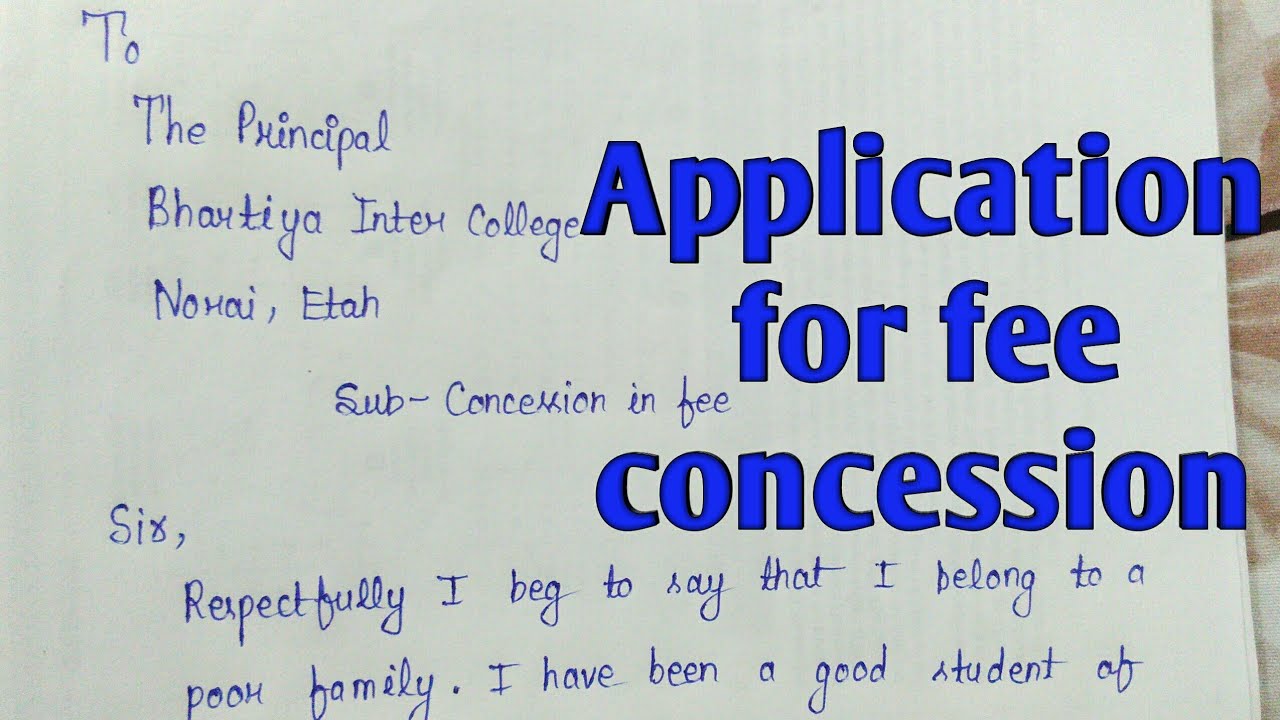 To
The Principal
Bhartiya Inter College
Norai, Etah
Sub- Concession in fee
Sir,
Respectfully I beg to say that I belong to a
poor family. I have been a good student of
Application
for fee
concession